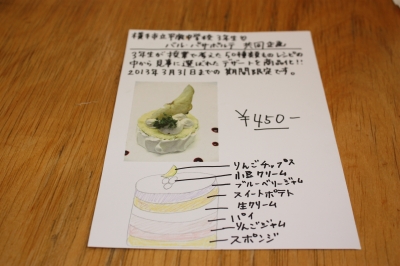 横手市立平鹿中学校 3年生の
バル・パサポルテ 共同企画
3年生が授業で考えた50種類ものレシピの
中から見事に選ばれたデザートを商品化!!
2013年3月31日までの期間限定です。
¥450-
りんごチップス
小豆クリーム
ブルーベリージャム
スイートポテト
生クリーム
パイ
りんごジャム
スポンジ